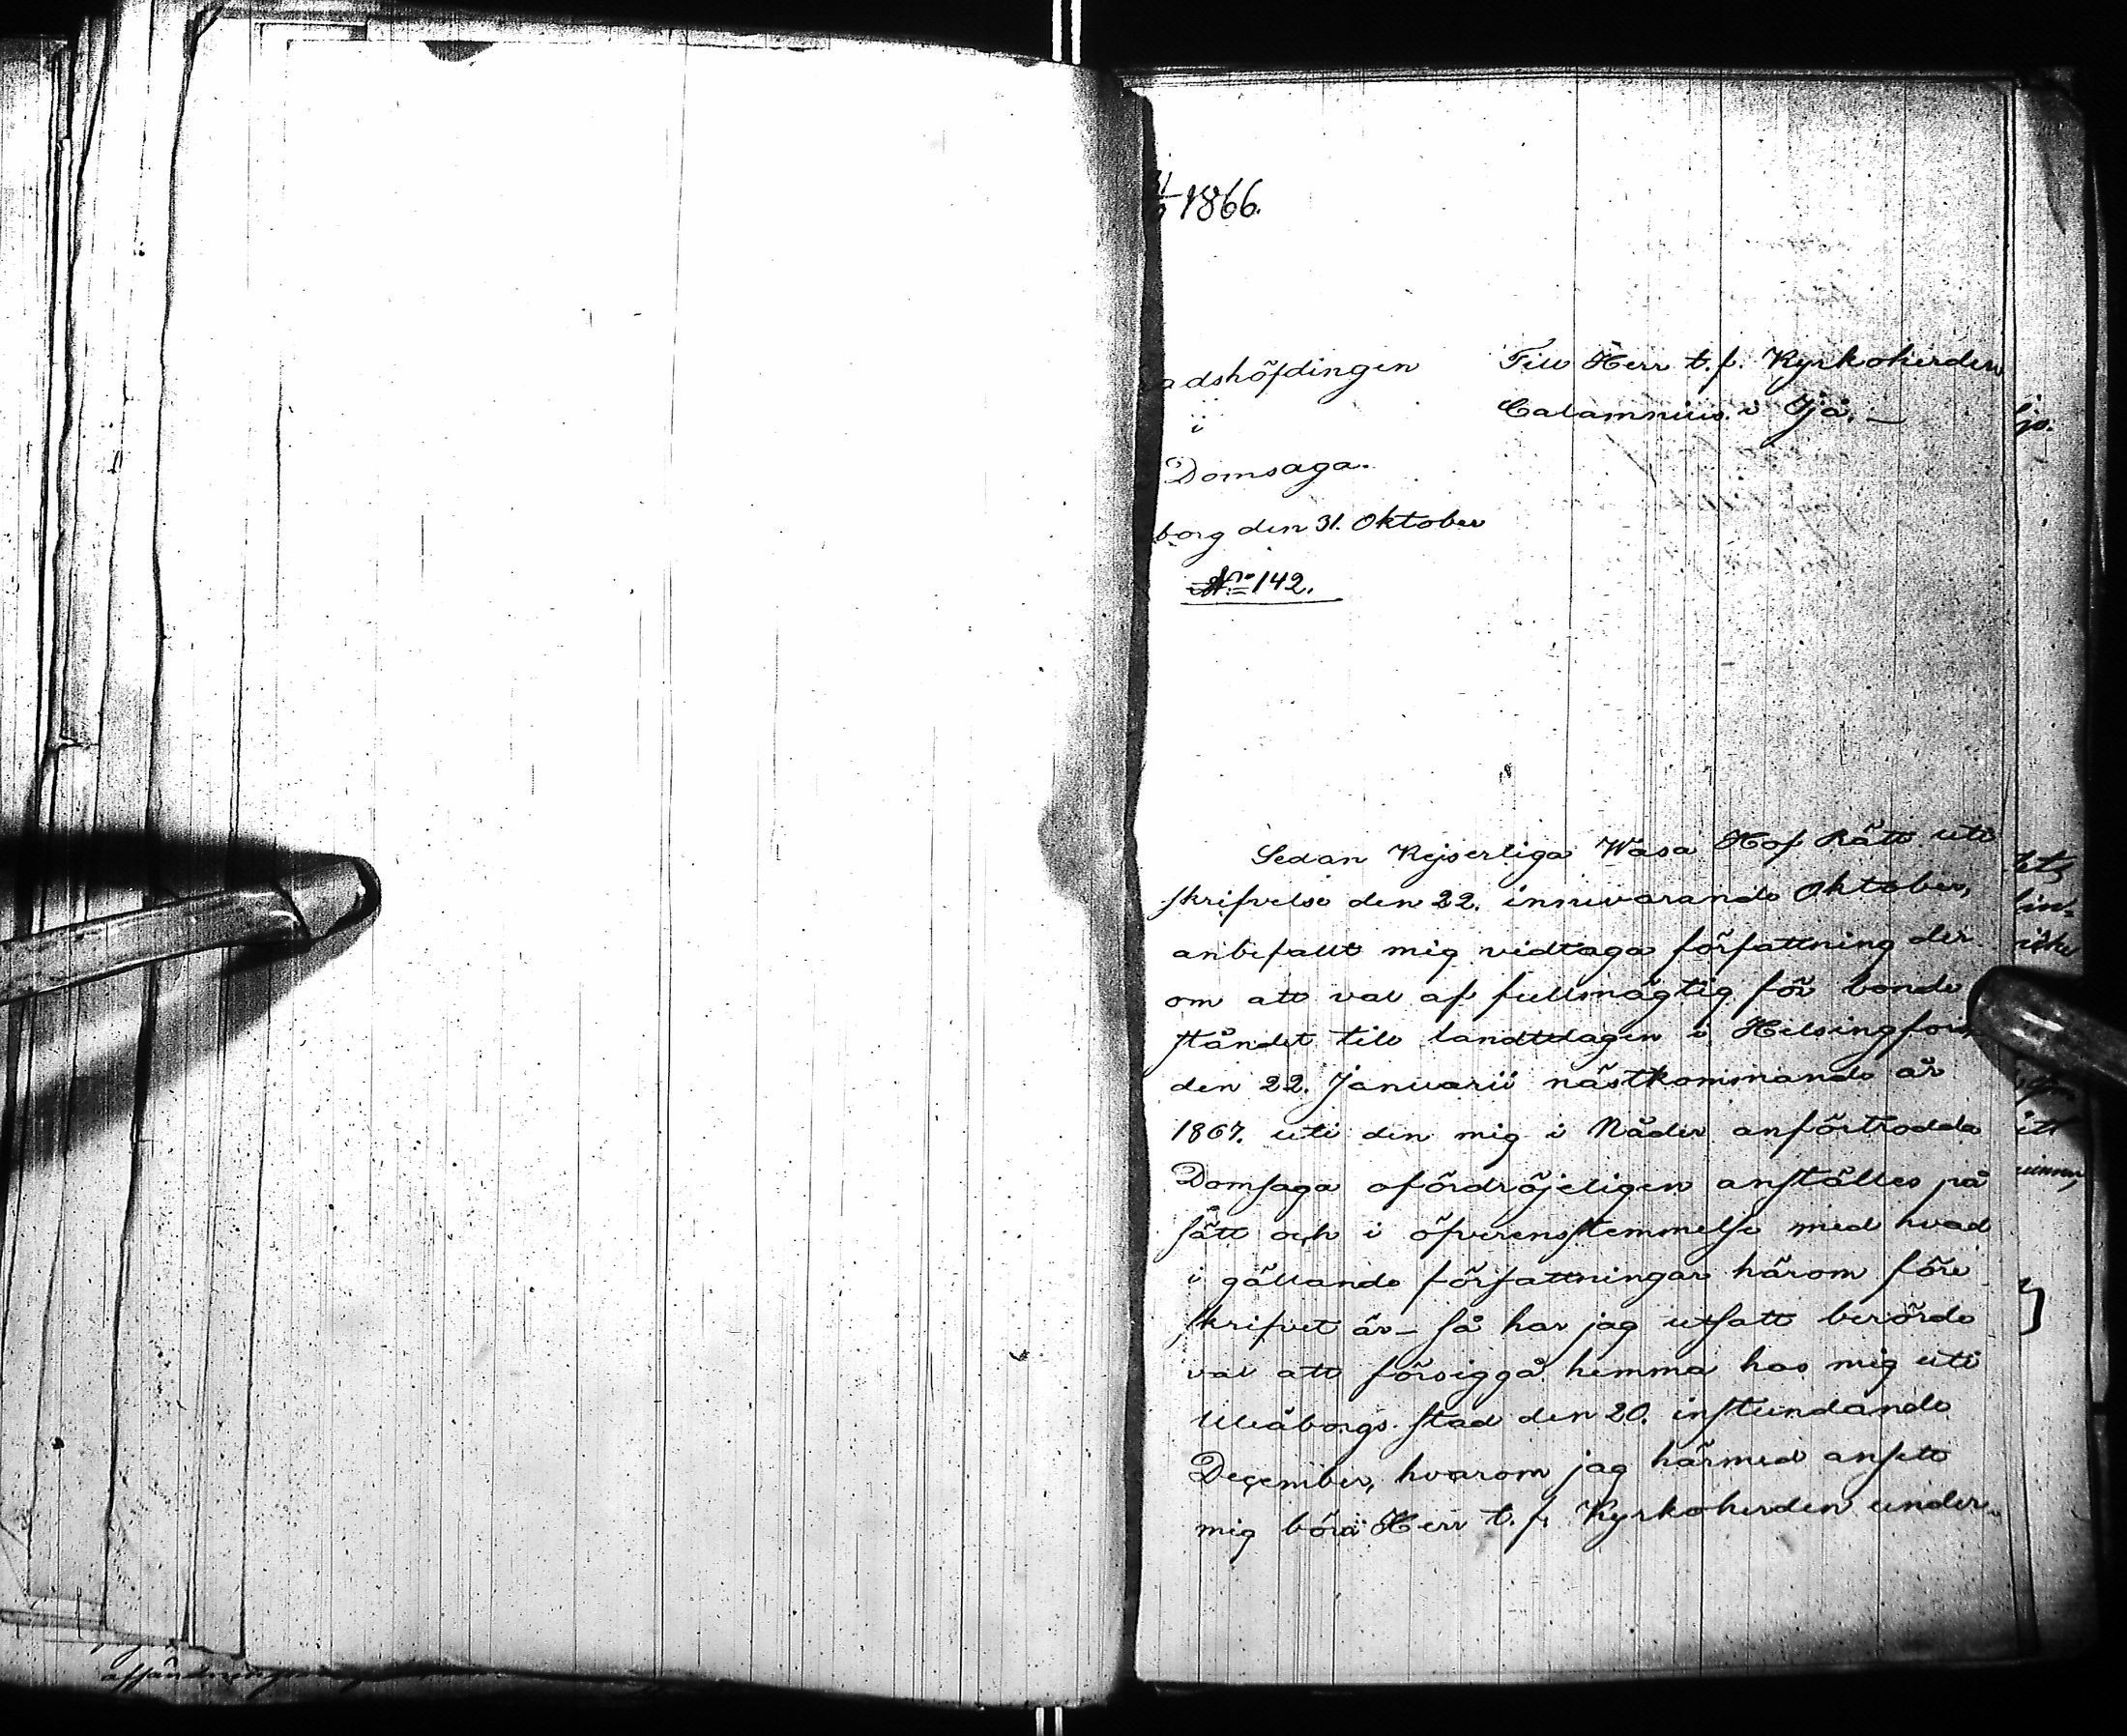 1866.
adshöfdingen
i
Domsaga.
borg den 31. Oktober
No 142.
Till Herr t. f. Kyrkoherden
Calamnius i Ijå. —
Sedan Kejserliga Wasa Hof Rätt uti
skrifvelse den 22. innevarande Oktober,
anbefallt mig vidtaga författning der
om att val af fullmägtig för bonde
ståndet till landtdagen i Helsingfors
den 22. Januarii nästkommande år
1867. uti den mig i Nåder anförtrodda
Domsaga ofördröjeligen anställes på
sätt och i öfverensstemmelse med hvad
i gällande författningar härom före
skrifvet är – så har jag utsatt berörde
val att försiggå hemma hos mig uti
Uleåborgs stad den 20. instundande
December, hvarom jag härmed ansett
mig böra Herr t. f. Kyrkoherden under